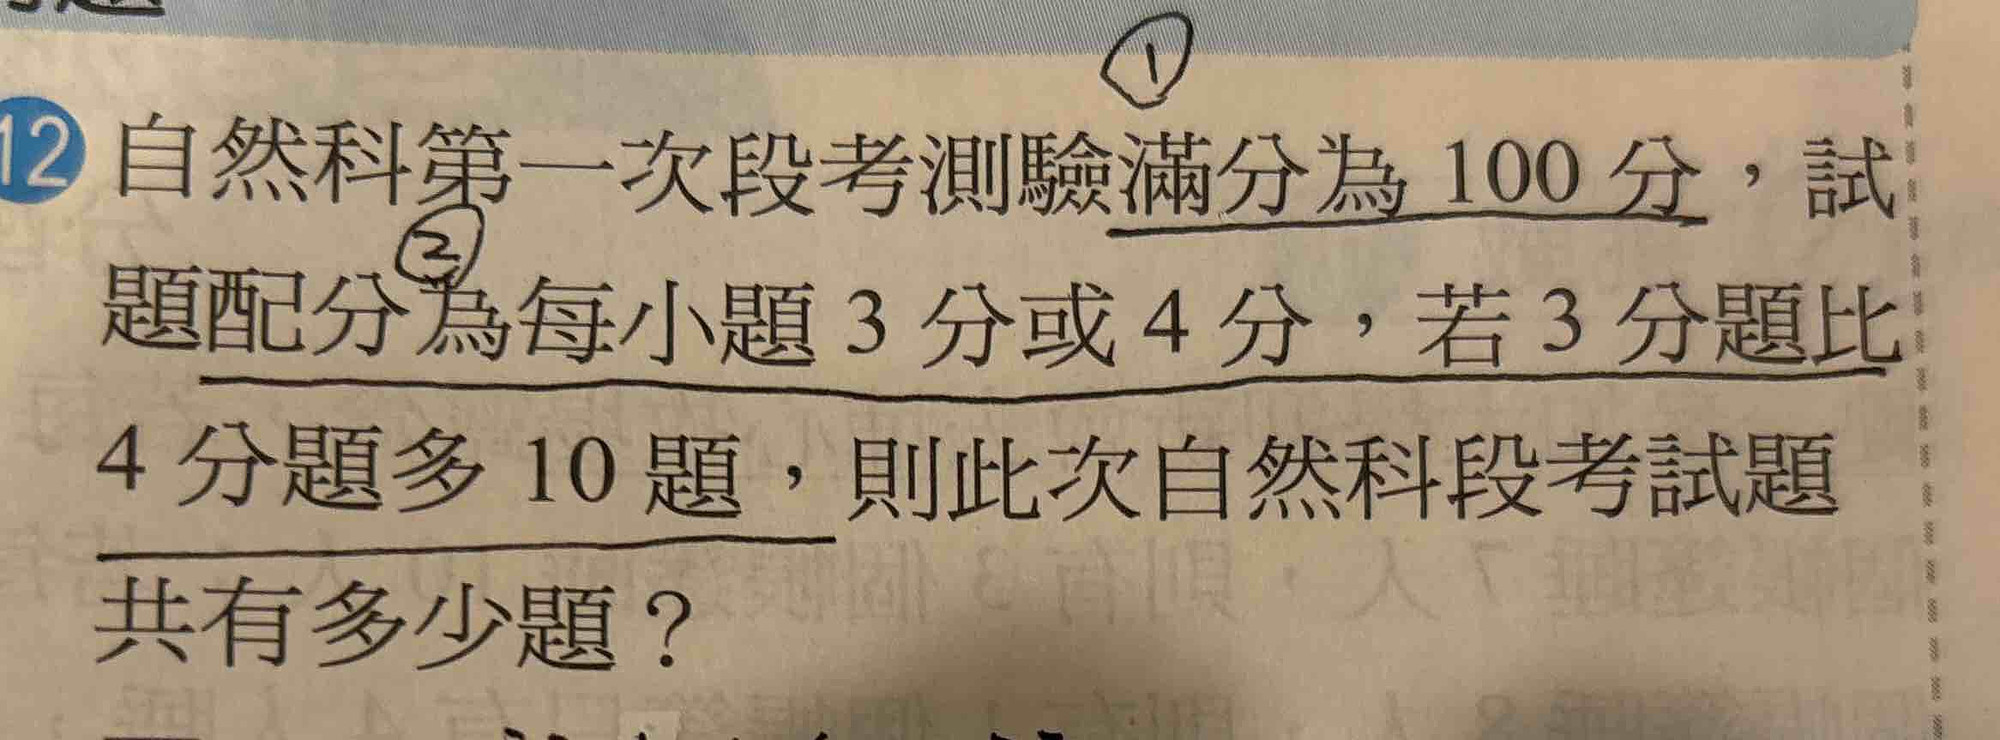 ①
12 自然科第一次段考測驗滿分為 100 分，試
②
題配分為每小題 3 分或 4 分，若 3 分題比
4 分題多 10 題，則此次自然科段考試題
共有多少題？